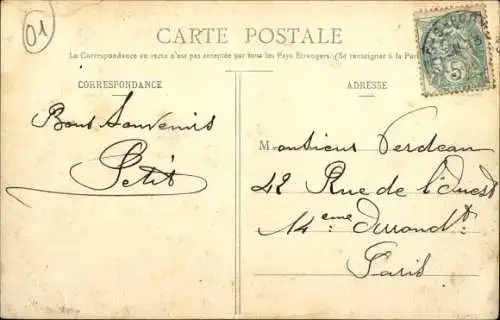 01
CARTE POSTALE
La Correspondance au recto n'est pas acceptée par tous les Pays Etrangers. (Se renseigner à la Poste
CORRESPONDANCE
ADRESSE
5
Bons Souvenirs
Petit
Monsieur Verdeau
42 Rue de l'Ouest
14eme Arrondt
Paris